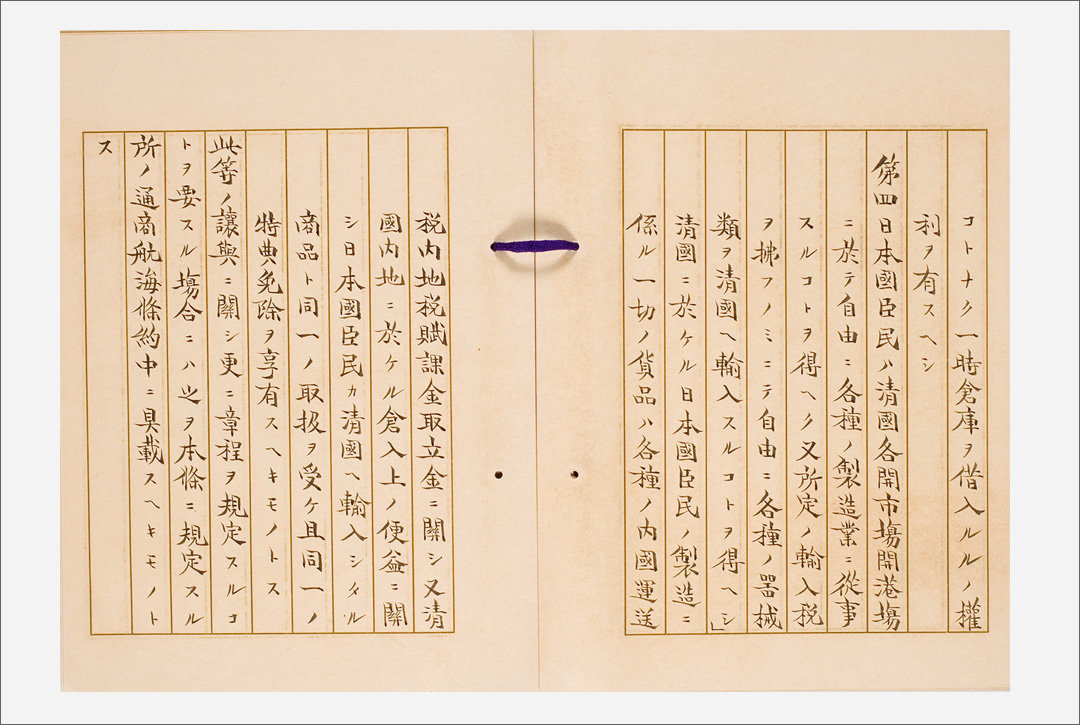 コトナク一時倉庫ヲ借入ルルノ權
利ヲ有スヘシ
第四日本國臣民ハ清國各開市場開港場
ニ於テ自由ニ各種ノ製造業ニ從事
スルコトヲ得ヘク又所定ノ輸入税
ヲ拂フノミニテ自由ニ各種ノ器械
類ヲ清國ヘ輸入スルコトヲ得ヘシ」
清國ニ於ケル日本國臣民ノ製造ニ
係ル一切ノ貨品ハ各種ノ内國運送
税内地税賦課金取立金ニ關シ又清
國内地ニ於ケル倉入上ノ便益ニ關
シ日本國臣民カ清國ヘ輸入シタル
商品ト同一ノ取扱ヲ受ケ且同一ノ
特典免除ヲ享有スヘキモノトス
此等ノ讓與ニ關シ更ニ章程ヲ規定スルコ
トヲ要スル場合ニハ之ヲ本條ニ規定スル
所ノ通商航海條約中ニ具載スヘキモノト
ス